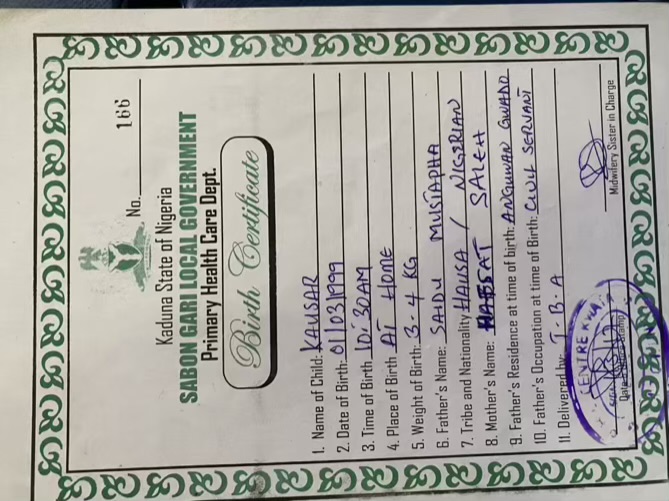 No. 166
Kaduna State of Nigeria
SABON GARI LOCAL GOVERNMENT
Primary Health Care Dept.
Birth Certificate
1. Name of Child: KAUSAR
2. Date of Birth: 01/03/1999
3. Time of Birth 10:30AM
4. Place of Birth AT HOME
5. Weight of Birth: 3-4 KG
6. Father's Name: SADU MUSTAPHA
7. Tribe and Nationality HAUSA / NIGERIAN
8. Mother's Name: SALEH
9. Father's Residence at time of birth: ANGUWAN GWADO
10. Father's Occupation at time of Birth: CIVIL SERVANT
11. Delivered by: T-B-A
Midwifery Sister in Charge